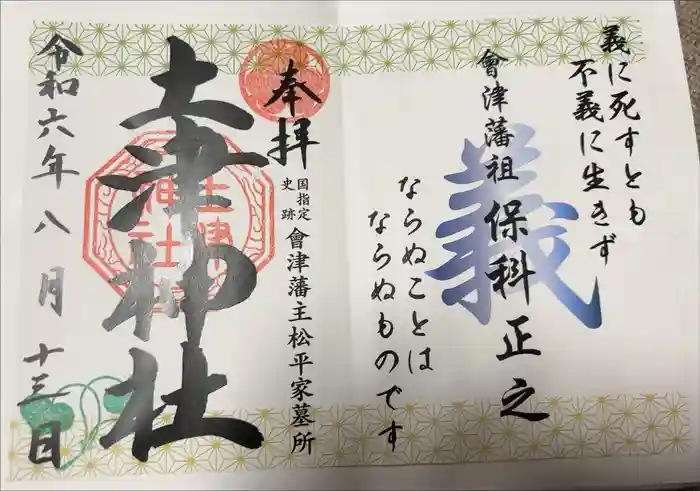 義に死すとも
不義に生きず
義
會津藩祖 保科正之
ならぬことは
ならぬものです
奉拝
国指定
史跡
會津藩主松平家墓所
土津神社
土津
神社
令和六年八月十三日